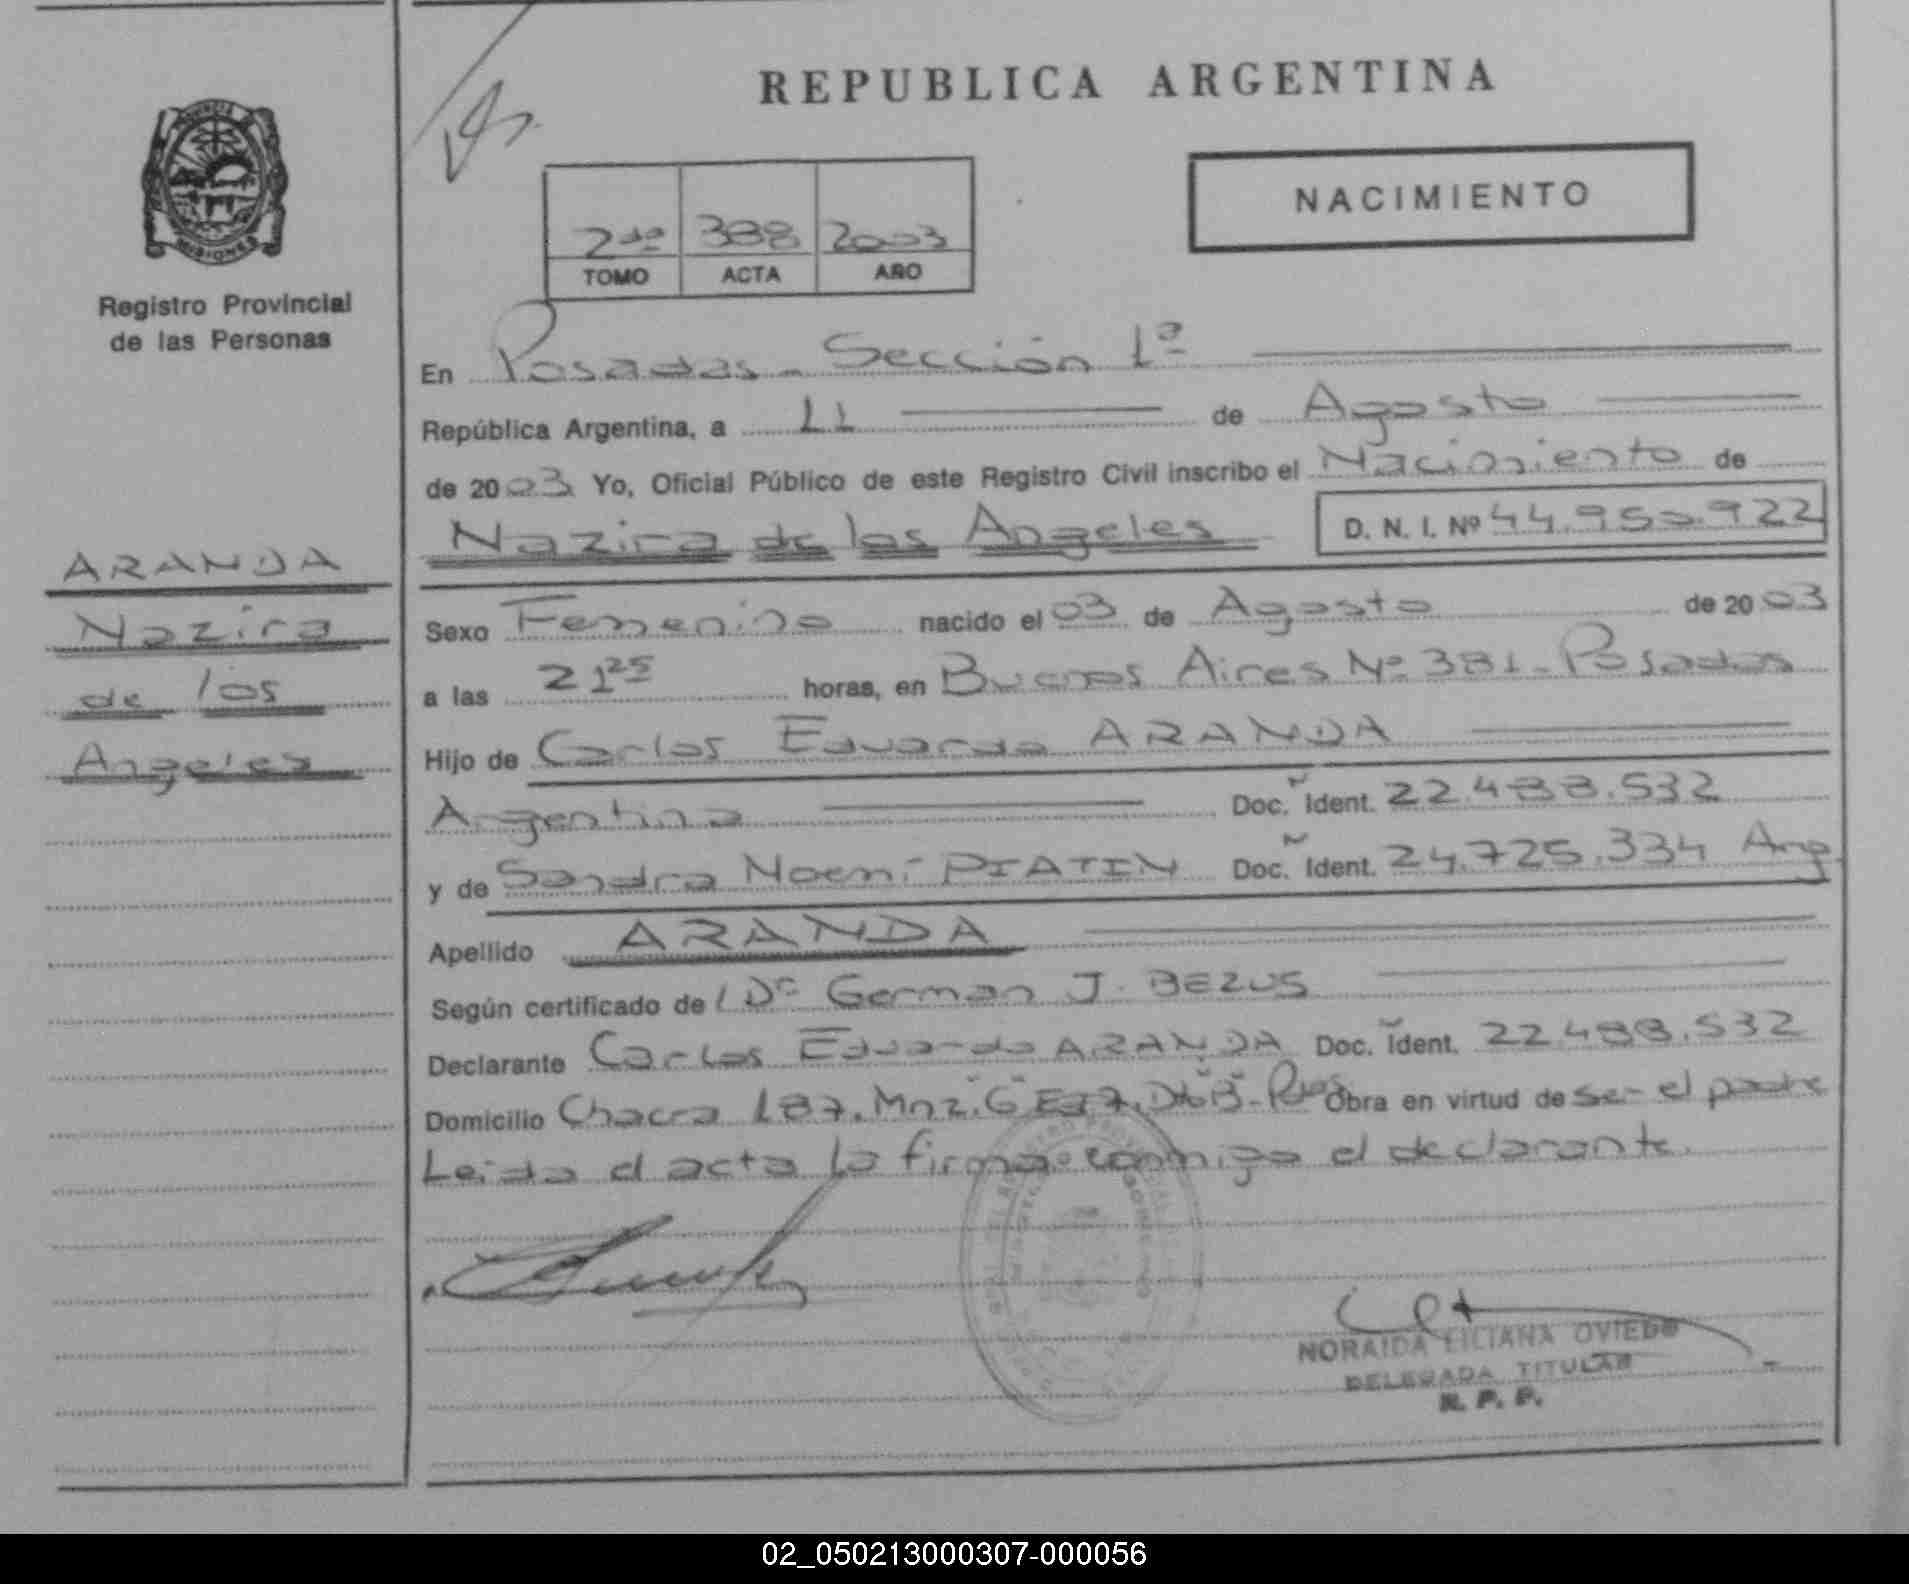 REPUBLICA ARGENTINA
NACIMIENTO
2do 388 2003
TOMO ACTA AÑO
Registro Provincial
de las Personas
ARANDA
Nazira
de los
Angeles
En Posadas - Sección 1ª
República Argentina, a 11 de Agosto
de 2003 Yo, Oficial Público de este Registro Civil inscribo el Nacimiento de
Nazira de los Angeles D. N. I. Nº 44.955.922
Sexo Femenino nacido el 03 de Agosto de 2003
a las 21 25 horas, en Buenos Aires Nº 381 - Posadas
Hijo de Carlos Eduardo ARANDA
Argentina Doc. Ident. 22.488.532
y de Sandra Noemí PIATIN Doc. Ident. 24.725.334 Arg.
Apellido ARANDA
Según certificado de Dr German J. BEZUS
Declarante Carlos Eduardo ARANDA Doc. Ident. 22.488.532
Domicilio Chacra 187, Mnz. G Obra en virtud de ser el padre
Leida el acta la firma conmigo el declarante.
NORAIDA LILIANA OVIEDO
DELEGADA TITULAR
R. P. P.
02_050213000307-000056